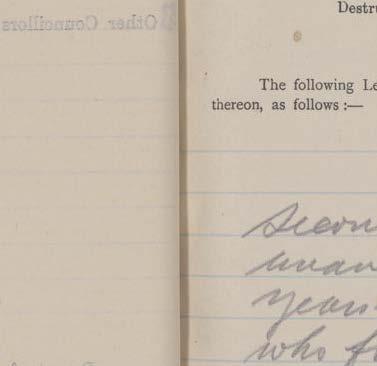 Other Councillors
Destru
The following Le
thereon, as follows :—
Secon
unan
years
who f